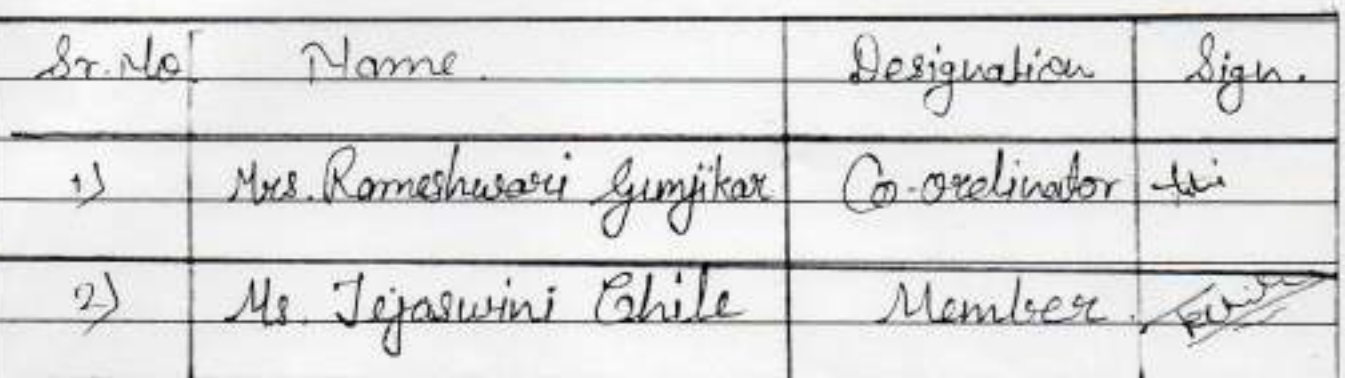 Sr. No. Name. Designation Sign.
1) Mrs. Rameshwari Gumjikar Co-ordinator
2) Ms. Tejaswini Chile Member.